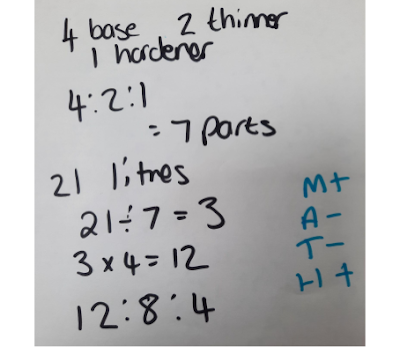 4 base 2 thinner
1 hardener
4:2:1
= 7 parts
21 litres
21÷7 = 3
3 x 4 = 12
12:8:4
M+
A-
T-
H+